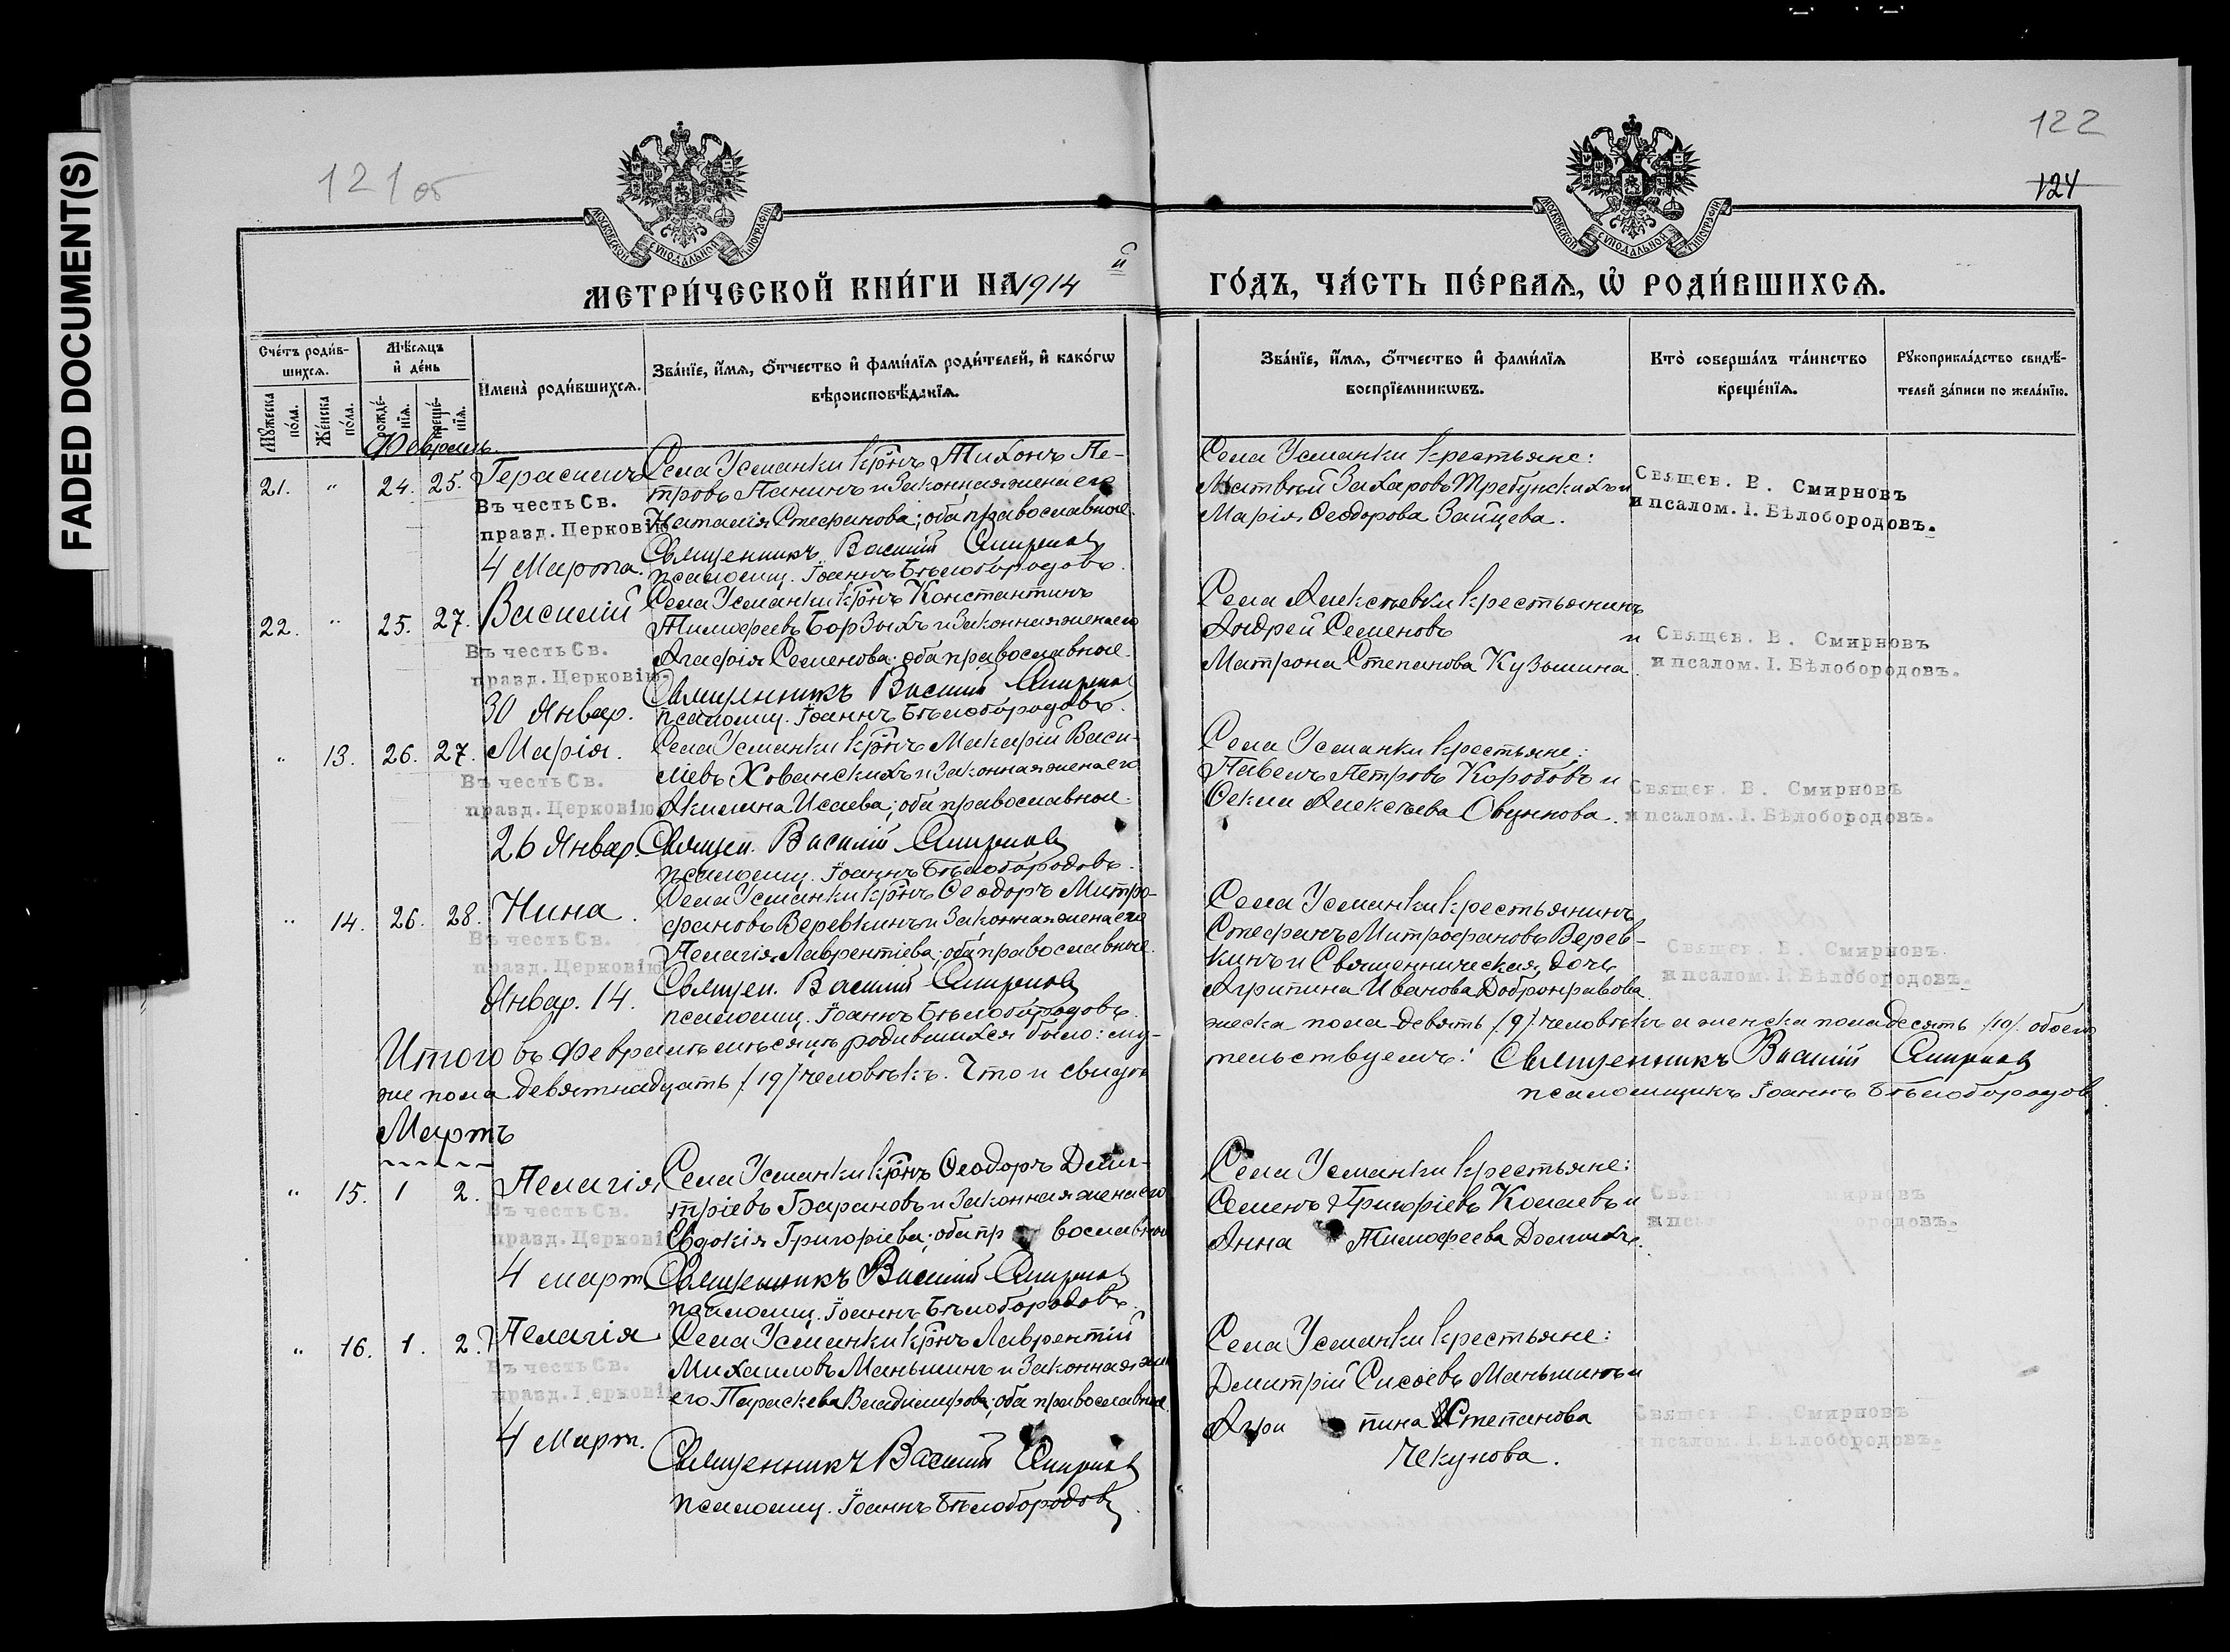 FADED DOCUMENT(S)
121 об
122
124
МОСКОВСКОЙ СѴНОДАЛЬНОЙ ТИПОГРАФІИ
МОСКОВСКОЙ СѴНОДАЛЬНОЙ ТИПОГРАФІИ
МЕТРИ́ЧЕСКОЙ КНИ́ГИ НА 1914 й ГО́ДЪ, ЧА́СТЬ ПЕ́РВАѦ, Ѡ҆ РОДИ́ВШИХСѦ.
Сче́тъ роди́в-
шихсѧ.
Мꙋ́жеска по́ла.
Же́нска по́ла.
Мѣ́сѧцъ
и҆ де́нь
рожде́-
нїѧ.
креще́-
нїѧ.
И҆мена̀ роди́вшихсѧ.
Зва́нїе, и҆́мѧ, ѻ҆́тчество и҆ фами́лїѧ роди́телей, и҆ како́гѡ
вѣроисповѣ́данїѧ.
Зва́нїе, и҆́мѧ, ѻ҆́тчество и҆ фами́лїѧ
воспрїе́мникѡвъ.
Кто̀ соверша́лъ та́инство
креще́нїѧ.
Рꙋкоприкла́дство свидѣ́-
телей за́писи по жела́нїю.
Февраль.
21. " 24. 25. Герасимъ
Въ честь Св.
правд. Церковію
4 Марта.
Села Усманки кр-нъ Тихонъ Пе-
тровъ Панинъ и законная жена его
Наталія Стефанова; оба православные.
Священникъ Василій Смирновъ
псаломщ. Іоаннъ Бѣлобородовъ.
Села Усманки крестьяне:
Матвѣй Захаровъ Требунскихъ и
Марія Ѳеодорова Зайцева.
Священ. В. Смирновъ
и псалом. І. Бѣлобородовъ.
22. " 25. 27. Василій
Въ честь Св.
правд. Церковію
30 Январ.
Села Усманки кр-нъ Константинъ
Тимофеевъ Борзыхъ и законная жена его
Агафія Семенова; оба православные.
Священникъ Василій Смирновъ
псаломщ. Іоаннъ Бѣлобородовъ.
Села Алексѣевки крестьянинъ
Андрей Семеновъ и
Матрона Степанова Кузьмина.
Священ. В. Смирновъ
и псалом. І. Бѣлобородовъ.
" 13. 26. 27. Марія.
Въ честь Св.
правд. Церковію
26 Январ.
Села Усманки кр-нъ Макарій Васи-
ліевъ Хованскихъ и законная жена его
Акилина Исаева; оба православные.
Священ. Василій Смирновъ
псаломщ. Іоаннъ Бѣлобородовъ.
Села Усманки крестьяне:
Павелъ Петровъ Коробовъ и
Ѳекла Алексѣева Овчинникова.
Священ. В. Смирновъ
и псалом. І. Бѣлобородовъ.
" 14. 26. 28. Нина.
Въ честь Св.
правд. Церковію
Январ. 14.
Села Усманки кр-нъ Ѳеодоръ Митро-
фановъ Веревкинъ и законная жена его
Пелагія Лаврентіева; оба православные.
Священ. Василій Смирновъ
псаломщ. Іоаннъ Бѣлобородовъ.
Села Усманки крестьянинъ
Стефанъ Митрофановъ Верев-
кинъ и Священническая дочь
Агрипина Иванова Добронравова.
Священ. В. Смирновъ.
и псалом. І. Бѣлобородовъ.
Итого въ Февралѣ мѣсяцѣ родившихся было: му-
жеска пола девять /9/ человѣкъ и женска пола десять /10/. обоего
же пола девятнадцать /19/ человѣкъ. Что и свидѣ-
тельствуемъ: Священникъ Василій Смирновъ
псаломщикъ Іоаннъ Бѣлобородовъ.
Мартъ
" 15. 1 2. Пелагія
Въ честь Св.
правд. Церковію
4 март.
Села Усманки кр-нъ Ѳеодоръ Дими-
тріевъ Барановъ и законная жена его
Евдокія Григоріева; оба православные
Священникъ Василій Смирновъ
псаломщ. Іоаннъ Бѣлобородовъ.
Села Усманки крестьяне:
Семенъ Григоріевъ и
Анна Тимофеева
" 16. 1. 2. Пелагія
Въ честь Св.
правд. Церковію
4 Март.
Села Усманки кр-нъ Лаврентій
Михаиловъ Маньшинъ и законная жена
его Параскева Владимірова; оба православные.
Священникъ Василій Смирновъ
псаломщ. Іоаннъ Бѣлобородовъ
Села Усманки крестьяне:
Димитрій Сисоевъ Маньшинъ и
Агрипина Степанова
Чекунова.
Священ. В. Смирновъ
и псалом. І. Бѣлобородовъ.